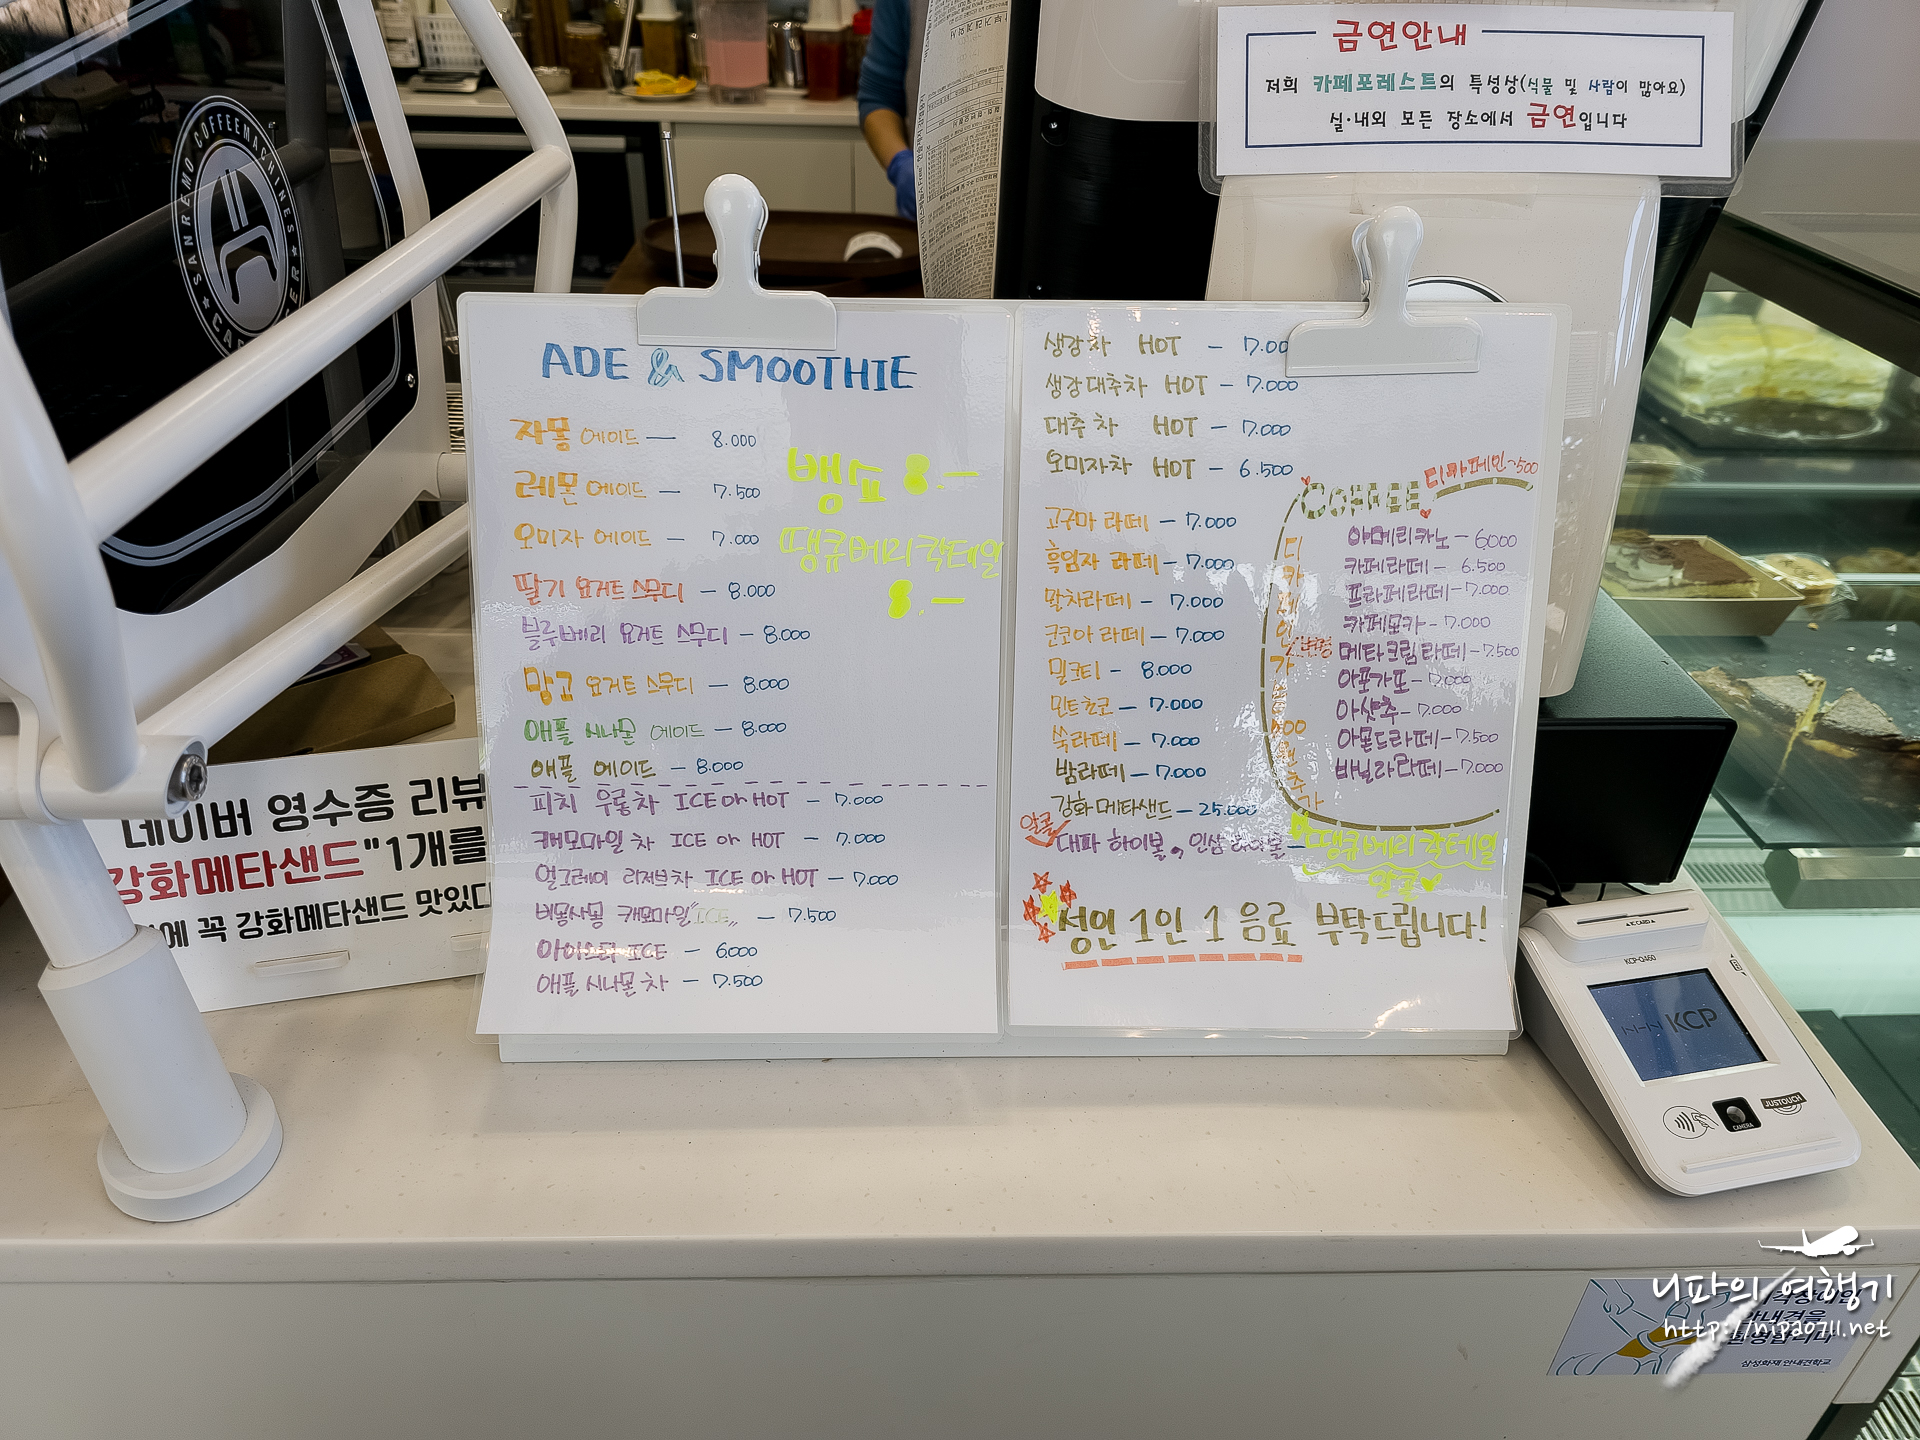 금연안내
저희 카페포레스트의 특성상(식물 및 사람이 많아요)
실·내외 모든 장소에서 금연입니다
SANREMO COFFEE MACHINES
ADE & SMOOTHIE
자몽 에이드 — 8.000
레몬 에이드 — 7.500
오미자 에이드 — 7.000
딸기 요거트 스무디 — 8.000
블루베리 요거트 스무디 — 8.000
망고 요거트 스무디 — 8.000
애플 시나몬 에이드 — 8.000
애플 에이드 — 8.000
피치 우롱차 ICE or HOT — 7.000
캐모마일 차 ICE or HOT — 7.000
얼그레이 리저브차 ICE or HOT — 7.000
비몽사몽 캐모마일 "ICE" — 7.500
아이스티 ICE — 6.000
애플 시나몬 차 — 7.500
뱅쇼 8.—
땡큐베리칵테일
8.—
생강차 HOT — 7.00
생강대추차 HOT — 7.000
대추차 HOT — 7.000
오미자차 HOT — 6.500
고구마 라떼 — 7.000
흑임자 라떼 — 7.000
말차라떼 — 7.000
군코아 라떼 — 7.000
밀크티 — 8.000
민트초코 — 7.000
쑥라떼 — 7.000
밤라떼 — 7.000
강화메타샌드 — 25.000
알콜
대파 하이볼, 인삼 하이볼 —
땡큐베리칵테일
알콜
COFFEE
디카페인~500
아메리카노 — 6.000
카페라떼 — 6.500
프라페라떼 — 7.000
카페모카 — 7.000
메타크림라떼 — 7.500
아포가토 — 7.000
아샷추 — 7.000
아몬드라떼 — 7.500
바닐라라떼 — 7.000
성인 1인 1 음료 부탁드립니다!
네이버 영수증 리뷰
강화메타샌드"1개를
에 꼭 강화메타샌드 맛있다
IC CARD
KCP-Q460
NHN KCP
CAMERA
JUSTOUCH
니파의 여행기
http://nipa0711.net
안내견을
환영합니다
삼성화재 안내견학교